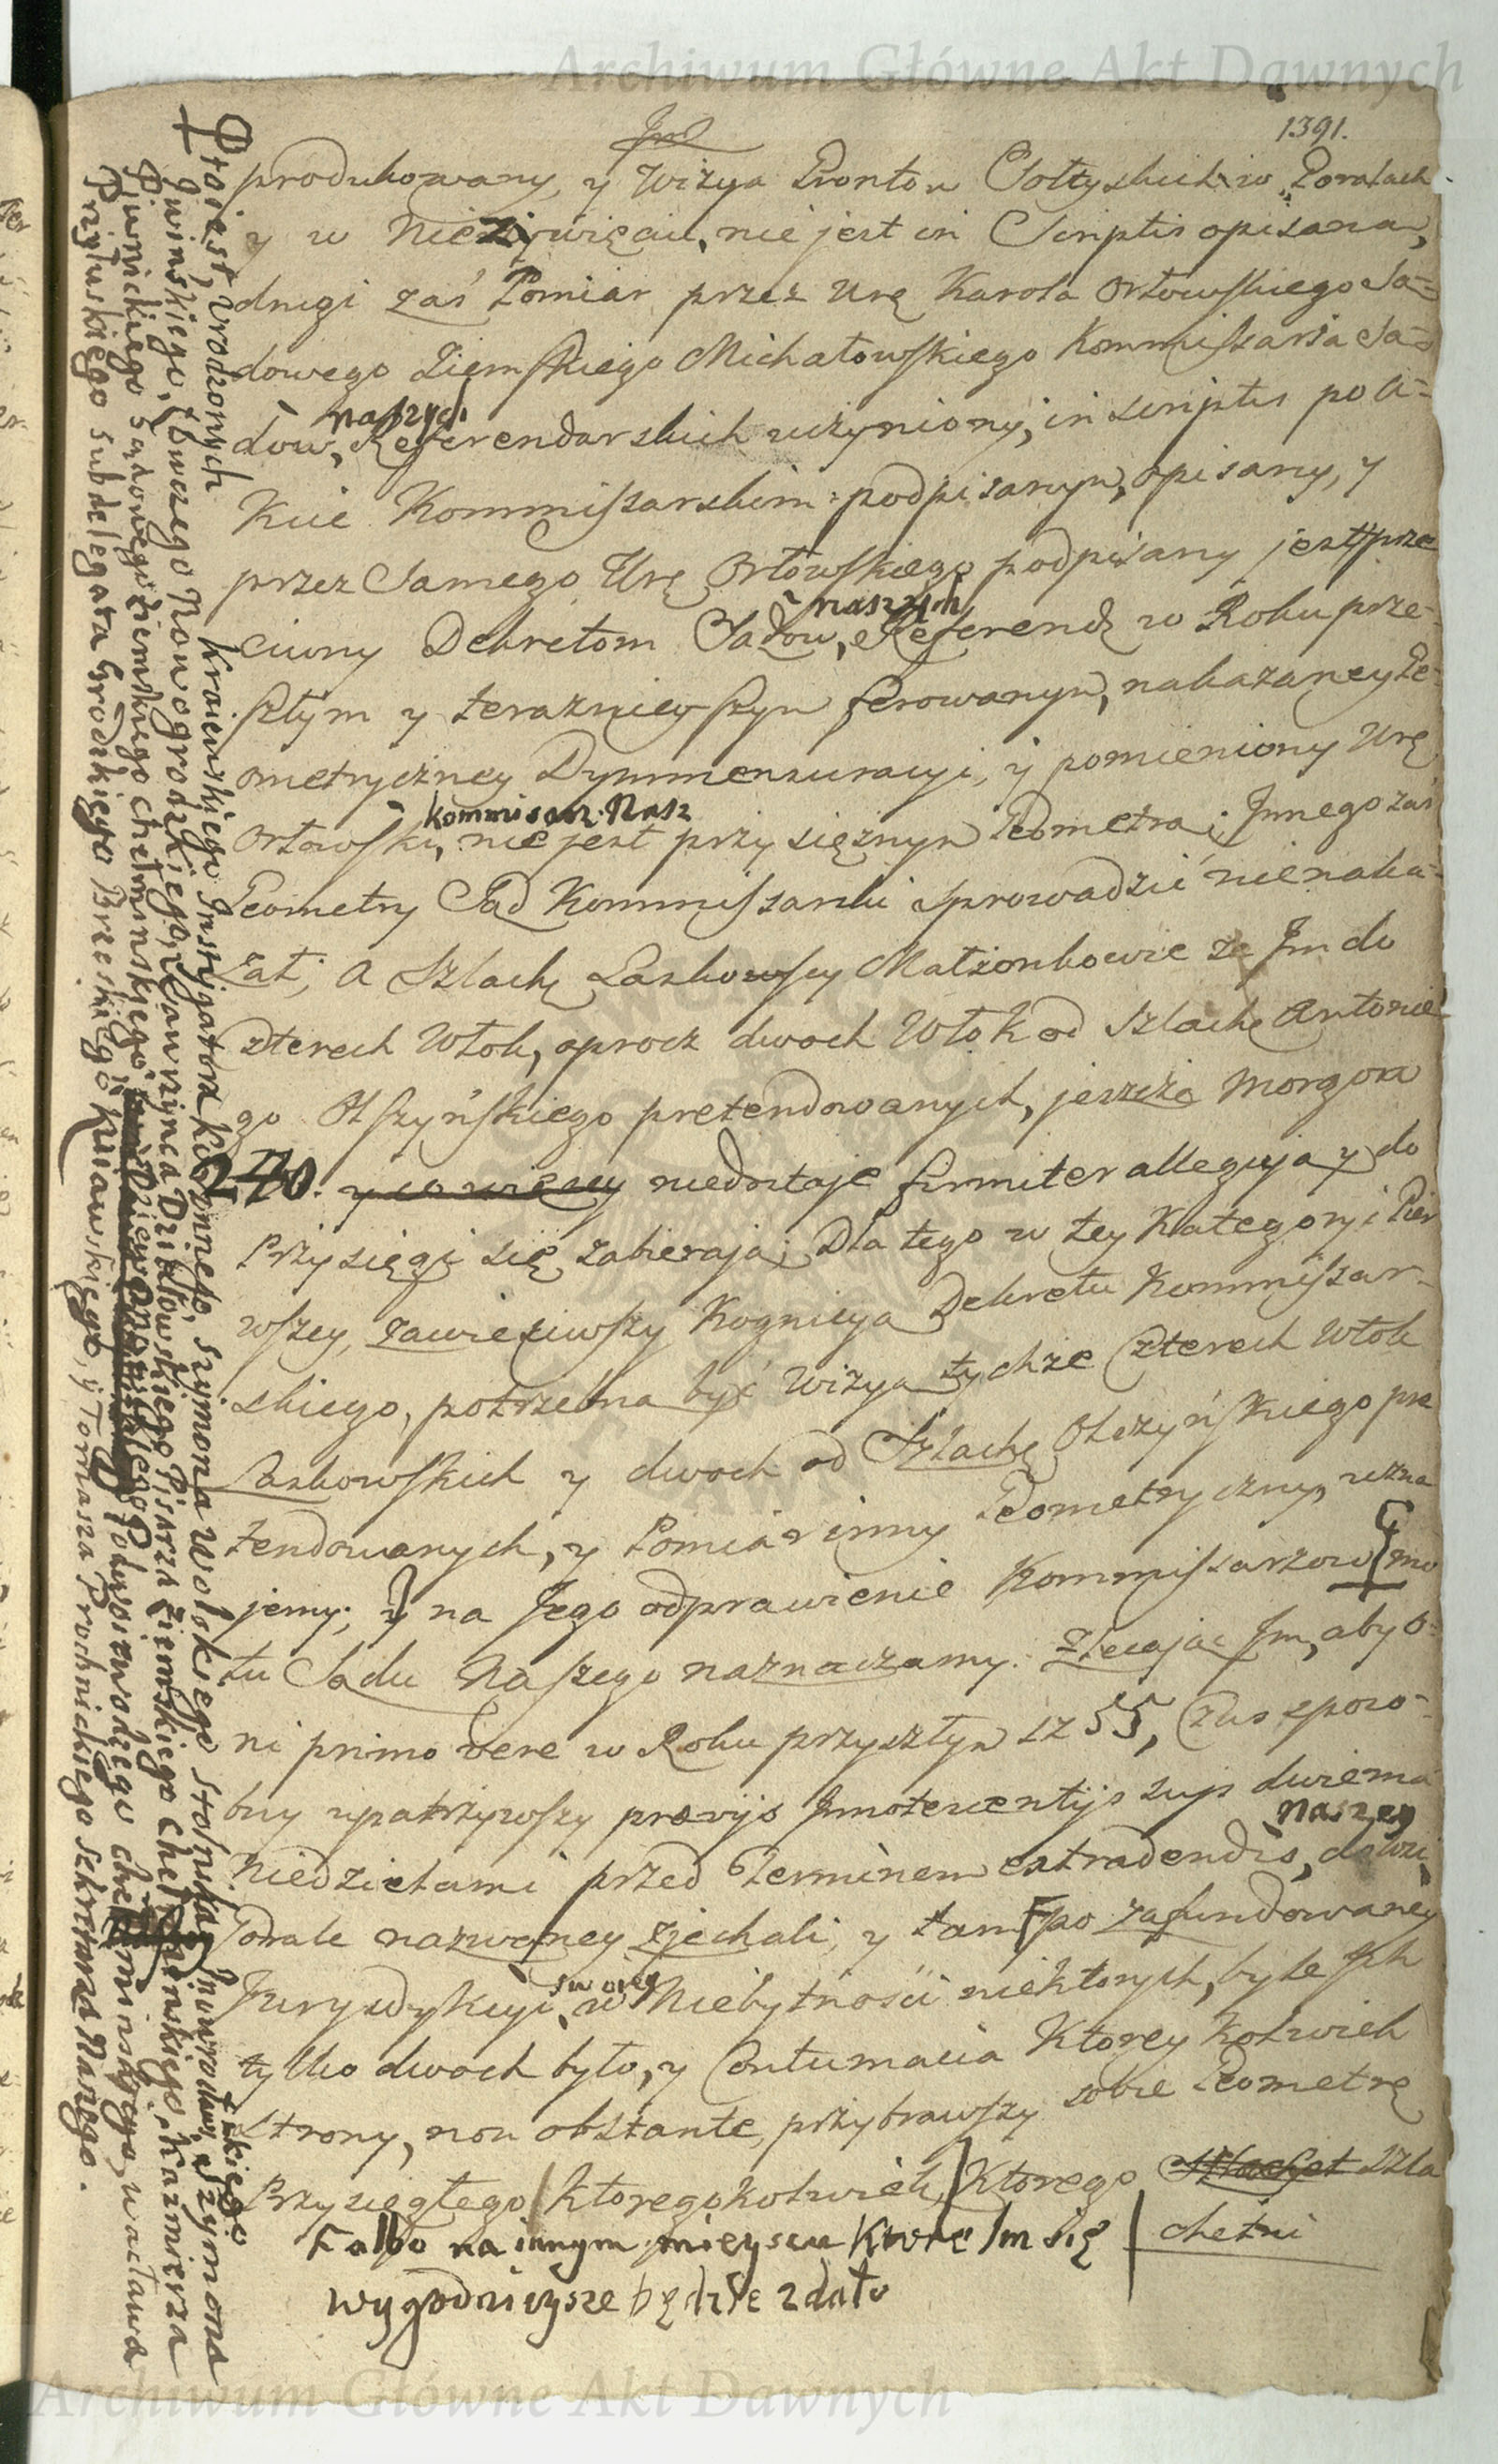 Archiwum Główne Akt Dawnych
1391.
produkowany, y Wizya Grontow Sołtyskich w Poralach
y w Niezywięciu, nie jest in Scriptis opisana,
drugi zaś Pomiar przez Urę Karola Orłowskiego Są=
dowego Ziemskiego Michałowskiego Kommissarza Są=
naszych
dow, Referendarskich uczyniony, in scriptis po A=
kcie Kommissarskim podpisanym, opisany, y
przez Samego Urę Orłowskiego podpisany jest prze
naszych
ciwny Dekretom Sądow, Referend w Roku prze=
szłym y teraznieyszym ferowanym, nakazaney Ge=
ometryczney Dymmensuracyi, y pomieniony Urę
kommissarz Nasz
Orłowski, nie jest przysięznym Geometrą; Innego zaś
Geometry Sąd Kommissarski sprowadzić nienaka=
zał; A Szlachę Laskowscy Małżonkowie ze Im do
czterech Włok, oprocz dwoch Włok od Szlachę Antonie=
go Olszyńskiego pretendowanych, jeszcze Morgow
240. y co więcey niedostaje firmiter allegują y do
Przysięgi się zabierają; Dla tego w tey Kategoryi Pier
wszey, zawiesiwszy Kognicyą Dekretu Kommissar=
skiego, potrzebną być Wizyą tychze Czterech Włok
Laskowskich y dwoch od Szlachę Olszyńskiego pre
tendowanych, y Pomiar inny Geometryczny, uzna
jemy; y na Jego odprawienie Kommissarzow mo
tu Sądu Naszego naznaczamy. Zlecając Im, aby o=
ni primo vere w Roku przyszłym 1755, Czas sposo=
bny upatrzywszy prævijs Innotescentijs suis dwiema
naszey
Niedzielami przed Terminem extradendis, do Wsi
Porale nazwaney zjechali, y tam po zafundowaney
swoiey
Jurysdykcyi, w Niebytności niektorych, byle Ich
tylko dwoch było, y Contumacia Ktorey Kolwiek
Strony, non obstante, przybrawszy sobie Geometrę
Przysięgłego Ktoregokolwiek, Ktorego Szlachet Szla
chetni
albo na innym mieyscu Ktore Im się
wygodnieysze będzie zdało
to iest, Urodzonych Kraiewskiego Instygatora Koronnego, Szymona Wolskiego Stolnika Inowrocław, Szymona
Pisarza Ziemskiego Chełmińskiego, Kazmierza
Piwnickiego Sądowego Ziemskiego Chełmińskiego, Podwoiewodzego Chełmińskiego, Wacława
Przyłuskiego Subdelegata Grodzkiego Brzeskiego Kuiawskiego, y Tomasza Prochnickiego Sekretarza Naszego.
Archiwum Główne Akt Dawnych